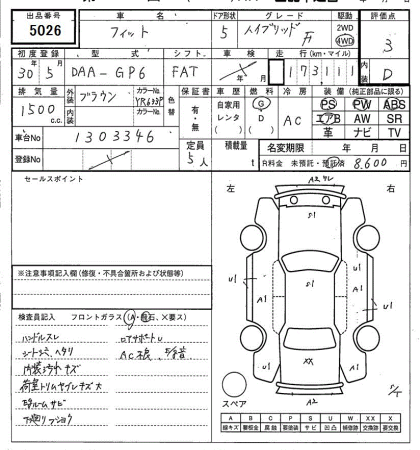 出品番号 車名 ドア形状 グレード 駆動 評価点
5026 フィット 5 ハイブリッド 2WD 4WD 3
初度登録 型式 シフト 車検 走行(km・マイル) 内装
30年5月 DAA-GP6 FAT 173111 D
排気量 外装 ブラウン カラーNo YR633P 色替 保証書 車歴 燃料 冷房 装備(純正部品に限る)
1500 c.c. 内装 カラーNo 有・無 自家用 レンタ G D AC PS PW ABS
エアB AW SR
革 ナビ TV
車台No 1303346 定員 5人 積載量 t 名変期限 年 月 日
登録No R料金 未預託・預託済 8,600円
セールスポイント 左 右
A2 サレ
S1
U1 A1 A1 U1
S1
XX
※注意事項記入欄(修復・不具合箇所および状態等)
検査員記入 フロントガラス(A・飛石、×要ス)
ハンドルスレ
シートシミ、ヘタリ AC
内装汚れキズ
荷室トリムヤブレキズ大
サビ
下廻りフショク
スペア
A B C P S U W X XX ×
線キズ 要板金 腐蝕 要塗装 サビ 凹凸 補修跡 交換跡 要交換